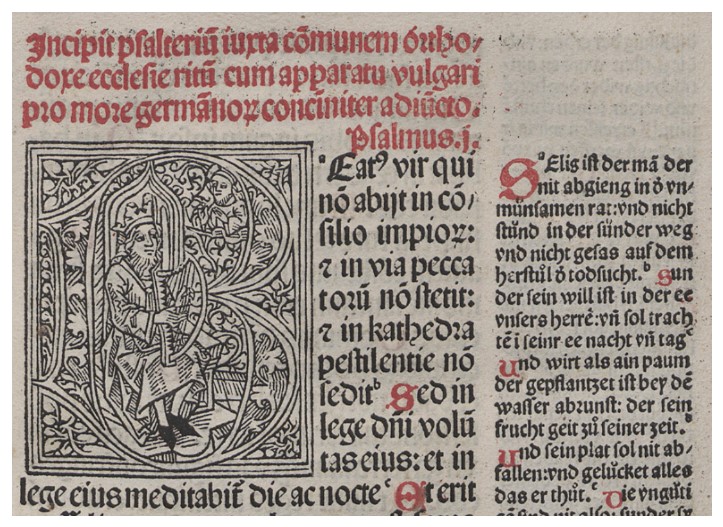 Incipit psalteriū iuxta cōmunem ortho⸗
doxe ecclesie ritū cum apparatu vulgari
pro more germāнoꝝ conciniter adiūcto.
Psalmus.j.
ᵃEatꝰ vir qui
nō abijt in cō⸗
silio impioꝝ:
⁊ in via pecca
torū nō stetit:
⁊ in kathedra
pestilentie nō
seditᵇ Sed in
lege dn̄i volū
tas eius: et in
lege eius meditabit̄ die ac nocteᶜ Et erit
Sᵃ Elig ist der mā der
nit abgieng in ð vn⸗
münsamen rat: vnd nicht
stůnd in der sünder weg
vnd nicht gesas auf dem
herstůl ð todsucht.ᵇ Sun
der sein will ist in der ee
vnsers herrē: vn̄ sol trach
tē i seinr ee nacht vn̄ tagᶜ
Und wirt als ain paum
der gepflantzet ist bey dē
wasser abrunst: der sein
frucht geit zů seiner zeit.ᵈ
Und sein plat sol nit ab⸗
fallen: vnd gelücket alles
das er thůt.ᵉ Die vngüti